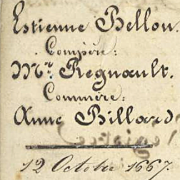 Estienne Bellou.
Compère:
Mr. Regnault.
Commère:
Anne Billard
12 Octobre 1667.